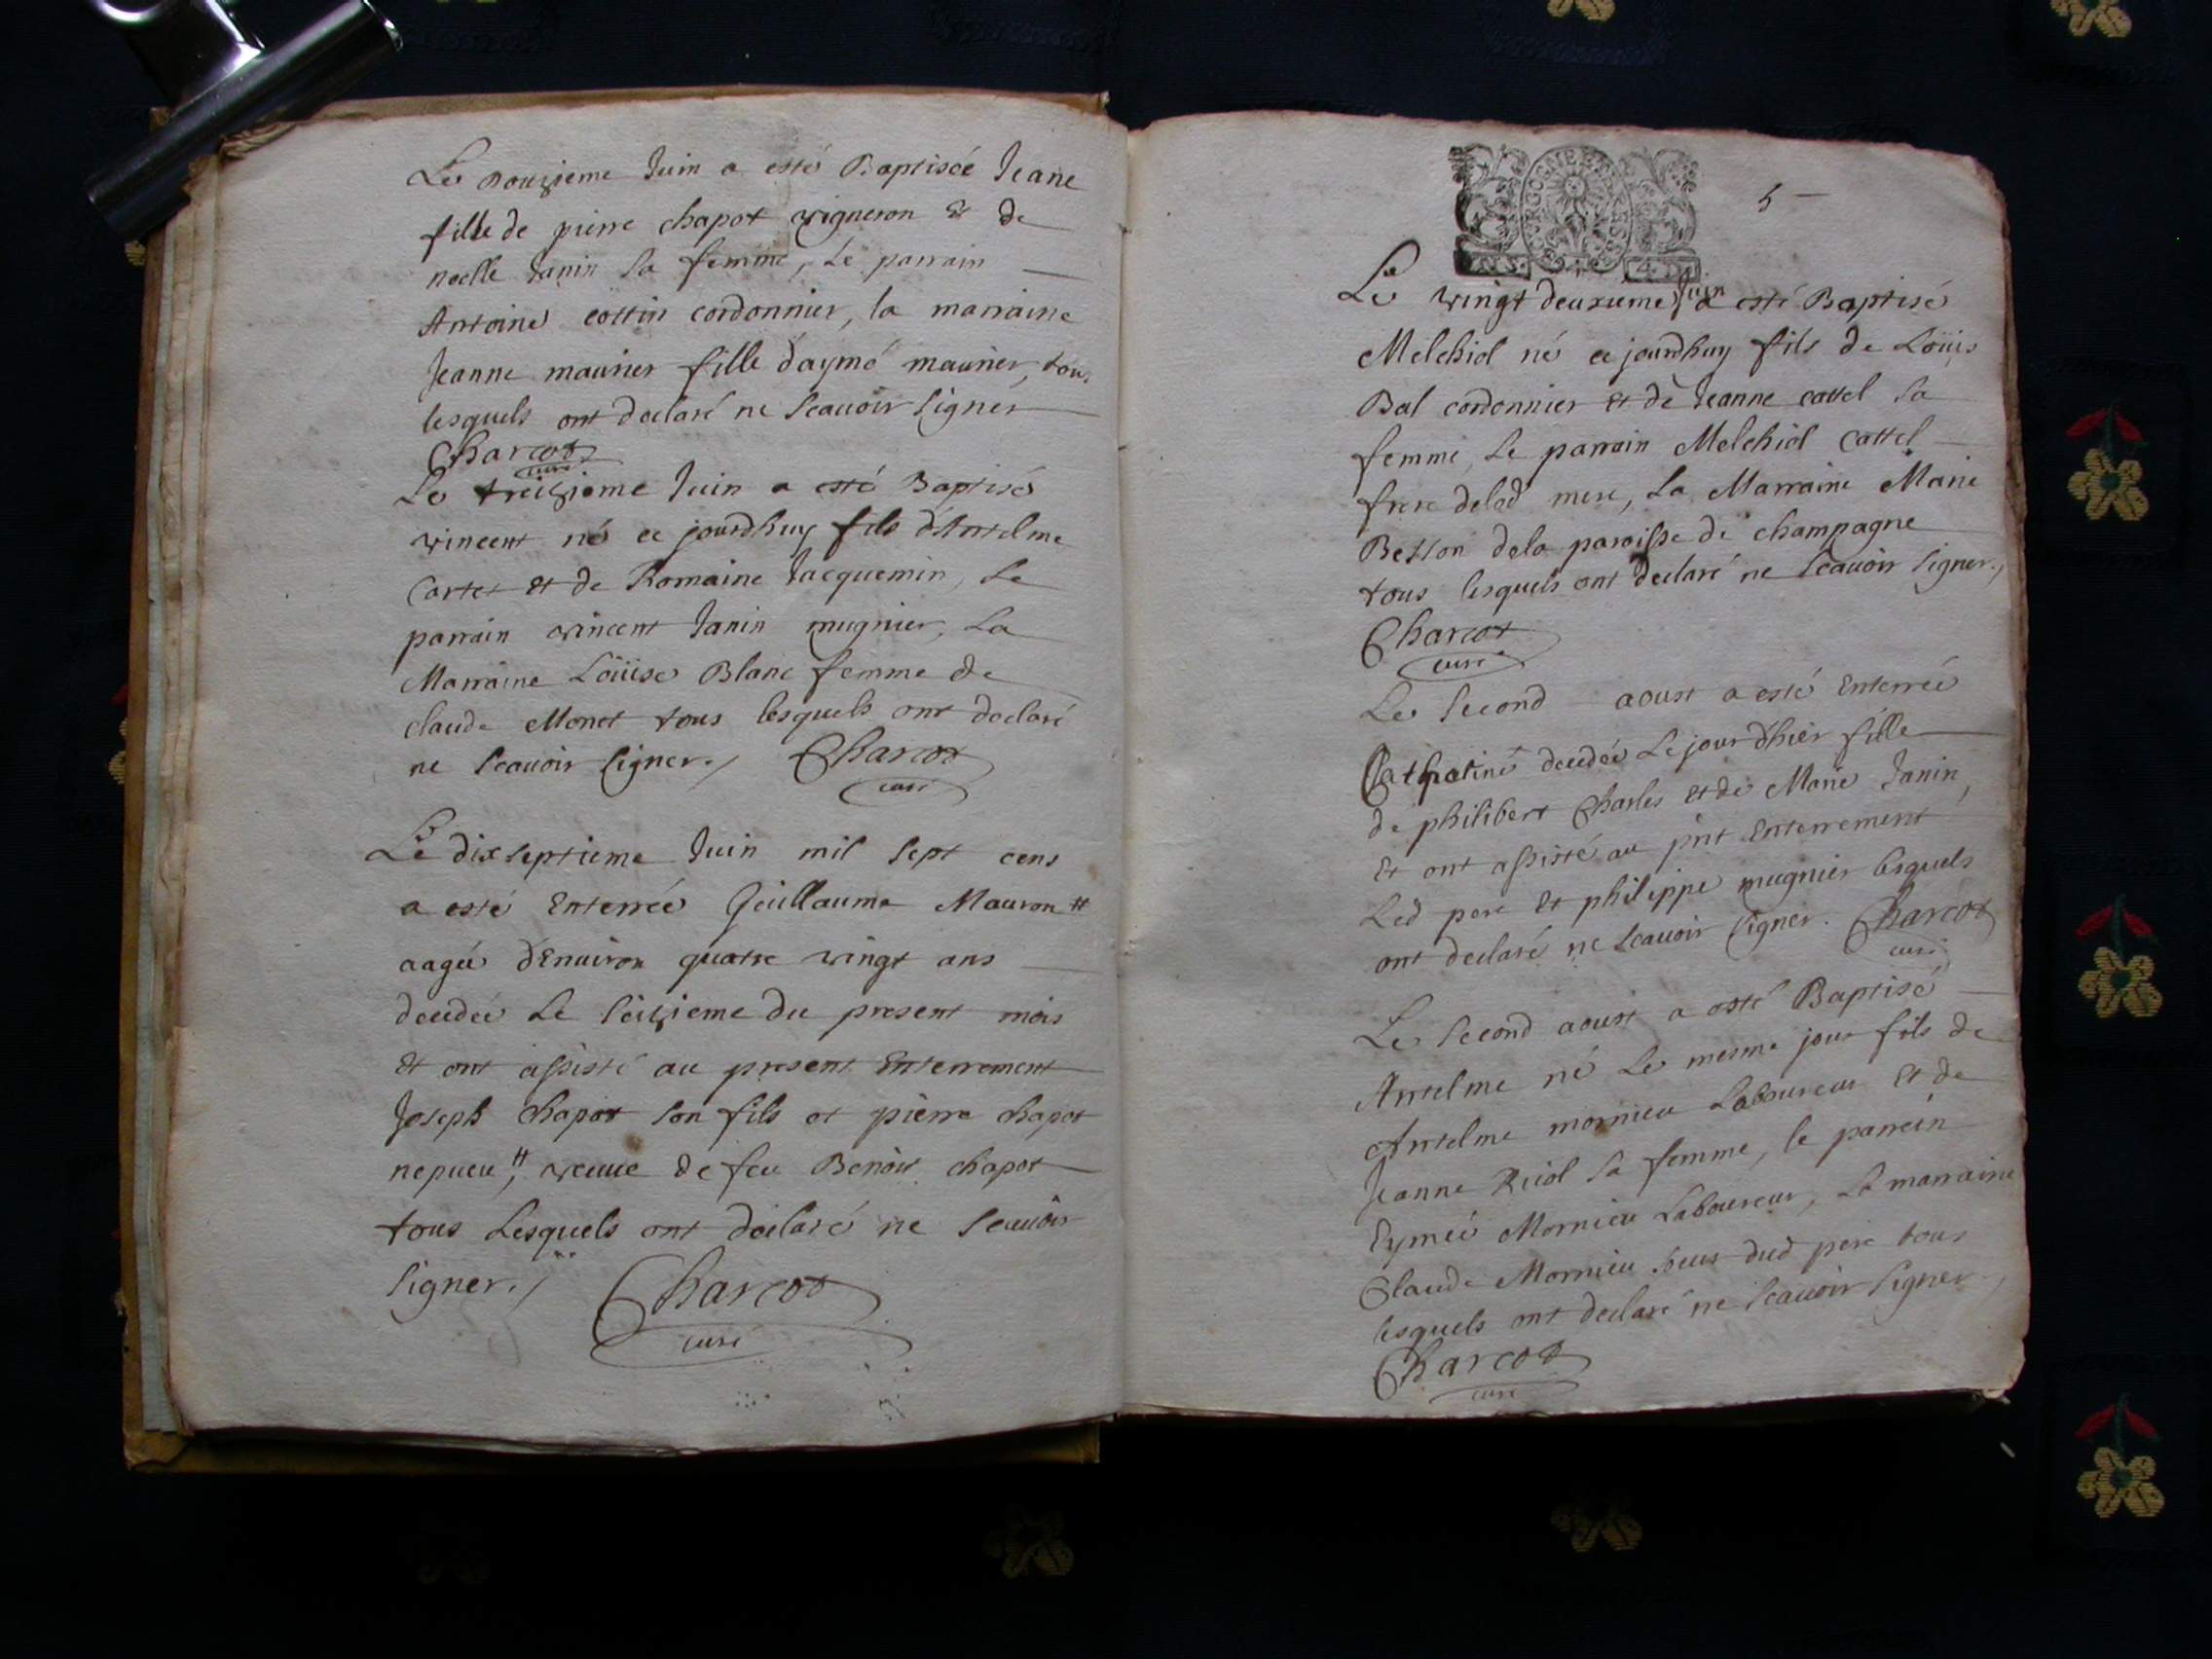 Le Douzieme Juin a esté Baptisée Jeane
fille de pierre chapot vigneron & de
noelle Janin sa femme, Le parrain
Antoine cottin cordonnier, la marraine
Jeanne maurier fille d'aymé maurier, tous
lesquels ont declaré ne scauoir signer
Charcot
curé
Le treizieme Juin a esté Baptisé
vincent né ce jourdhuy fils d'Antelme
Cartet et de Romaine Jacquemin, Le
parrain vincent Janin mugnier, La
Marraine Loüise Blanc femme de
claude Monet tous lesquels ont declaré
ne scauoir signer./ Charcot
curé
Le dixseptieme Juin mil sept cens
a esté Enterrée Guillauma Mauron #
aagée d'Enuiron quatre vingt ans
decedée Le seizieme du present mois
et ont assisté au present Enterrement
Joseph chapot son fils et pierre chapot
nepueu #, veuue de feu Benoit chapot
tous Lesquels ont declaré ne scauoir
signer./ Charcot
curé
BOURGOGNE ET BRESSE
5
Le vingt deuxieme Juin a esté Baptisé
Melchiol né ce jourdhuy fils de Loüis
Bal cordonnier et de Jeanne cattel sa
femme, Le parrain Melchiol Cattel
frere delad mere, La Marraine Marie
Besson dela paroisse de champagne
tous lesquels ont declaré ne scauoir signer./
Charcot
curé
Le second aoust a esté Enterrée
Catherine decedée Le jour d'hier fille
de philibert Charles et de Marie Janin,
Et ont assisté au pnt Enterrement
Led pere Et philippe mugnier lesquels
ont declaré ne scauoir signer. Charcot
curé
Le second aoust a esté Baptisé
Antelme né Le mesme jour fils de
Antelme mornieu Laboureur Et de
Jeanne sa femme, le parrein
Eymé Mornieu Laboureur, La marraine
Claude Mornieu seur dud pere tous
lesquels ont declaré ne scauoir signer./
Charcot
curé